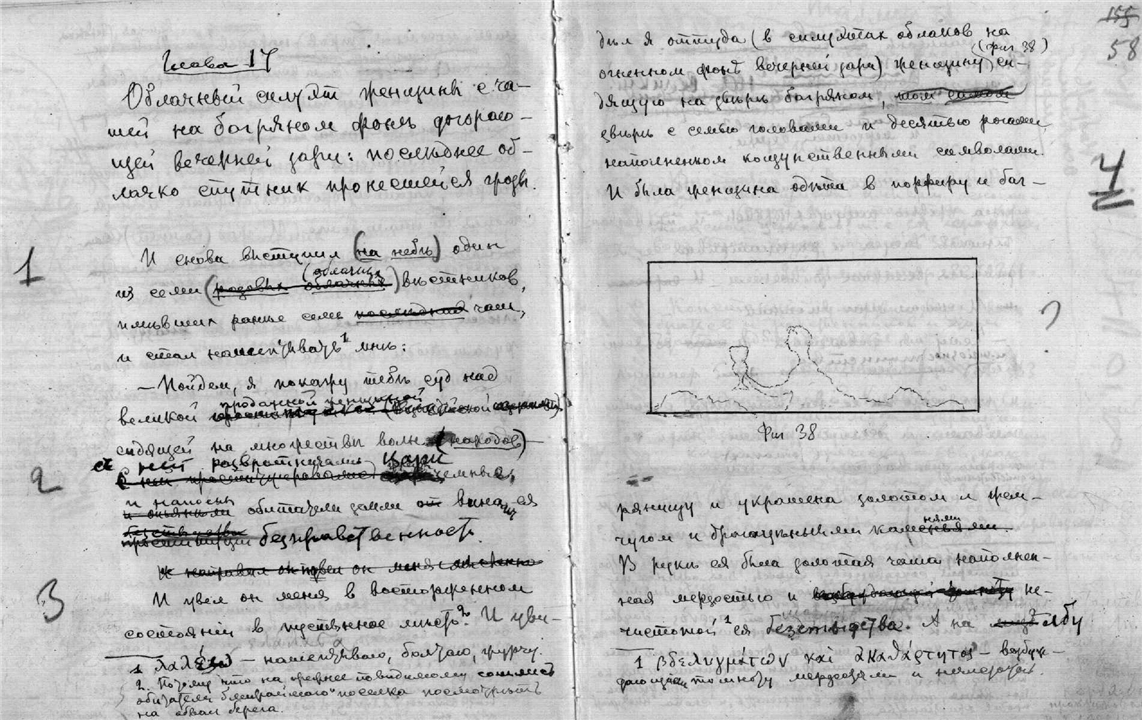 Глава 17
Облачный силуэт женщины с ча-
шей на багряном фоне догораю-
щей вечерней зари: последнее об-
лачко спутник пронесшейся грозы.
1
И снова выступил (на небѣ) один
из семи (облачных) вѣстников,
имѣвших раньше семь чаш,
и стал нашептывать¹ мнѣ:
— Пойдем, я покажу тебѣ суд над
великой продажной женщиной
сидящей на множествѣ волн (народов) —
2
с ней развратничали цари земные,
и напоены обитатели земли вина ея
безнравственность.
3
И увел он меня в восторженном
состоянии в пустынное мѣсто². И уви-
1 λαλέω — нашептываю, болтаю, журчу.
2 Потому что на
обитатели посёлка
на обвал берега.
155
58
дил я оттуда (в силуэтах облаков на
огненном фонѣ вечерней зари) женщину (фиг 38) си-
дящую на звѣрѣ багряном,
звѣрь с семью головами и десятью рогами,
наполненном кощунственными символами.
4
И была женщина одѣта в порфиру и баг-
Фиг 38
ряницу и украшена золотом и жем-
чугом и драгоцѣнными камнями.
В рукѣ ея была золотая чаша наполнен-
ная мерзостью и не-
чистотой¹ ея безстыдства. А на лбу
1 βδελυγμάτων καὶ ἀκαθάρτητος —
мерзостями и